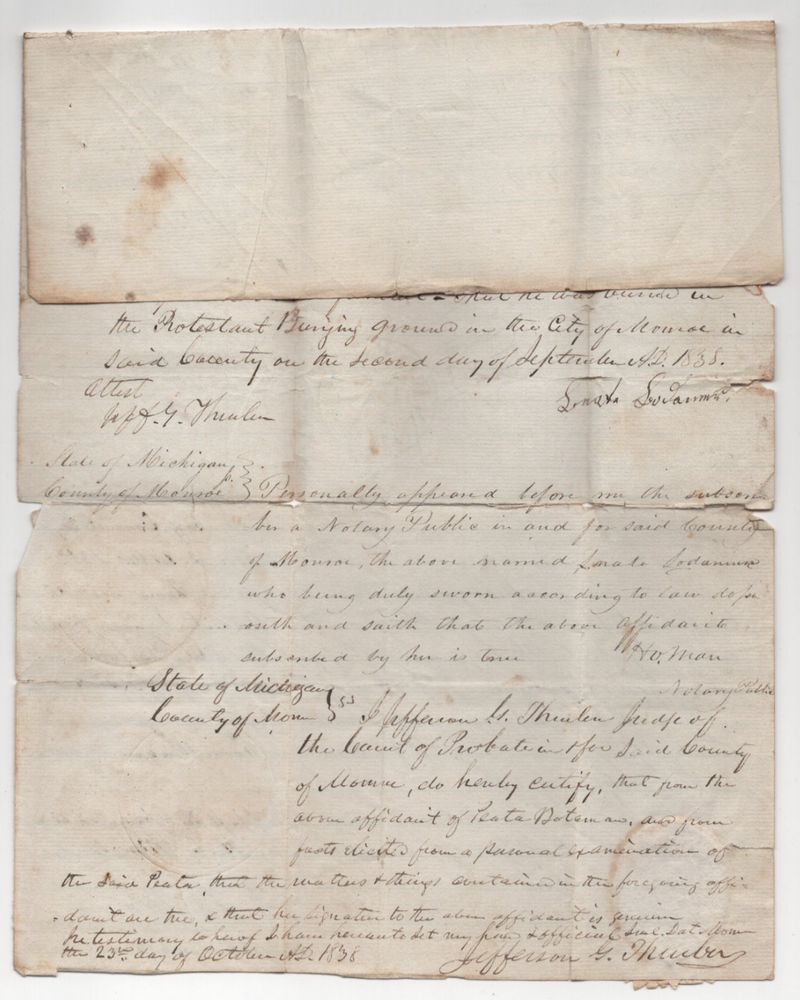 that he was buried in
the Protestant Burying ground in the City of Monroe in
said County on the second day of September A.D. 1838.
Attest
Jeff. G. Thurber
State of Michigan,
County of Monroe } Personally appeared before me the subscri
ber a Notary Public in and for said County
of Monroe, the above named
who being duly sworn according to law depo
seth and saith that the above affidavit
subscribed by her is true
Notary Public
State of Michigan
County of Monroe } ss I Jefferson G. Thurber Judge of
the Court of Probate in & for Said County
of Monroe, do hereby certify, that from the
above affidavit of Peata, and from
facts elicited from a personal examination of
the said Peata, that the matters & things contained in the foregoing affi-
-davit are true, & that her signature to the above affidavit is genuine
In testimony whereof I have hereunto set my & official Seal at Monroe
the 23rd day of October A.D. 1838
Jefferson G. Thurber